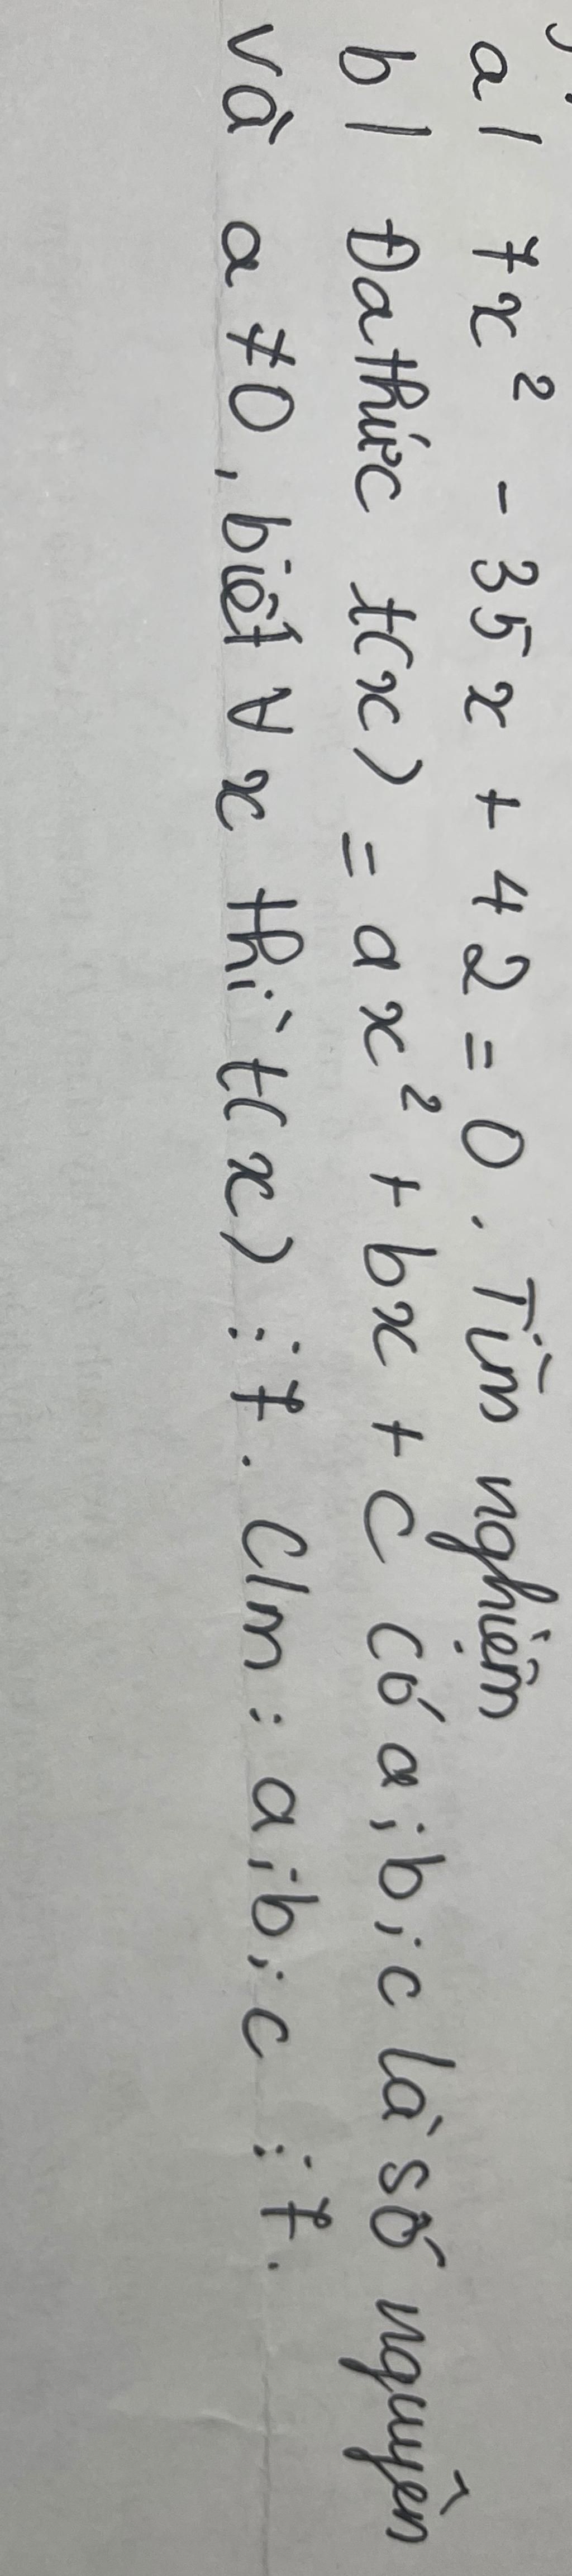 a/ 7x² - 35x + 42 = 0. Tìm nghiệm
b/ Đa thức t(x) = ax² + bx + c có a; b; c là số nguyên
và a ≠ 0, biết ∀ x thì t(x) ⋮ 7. C/m: a; b; c ⋮ 7.